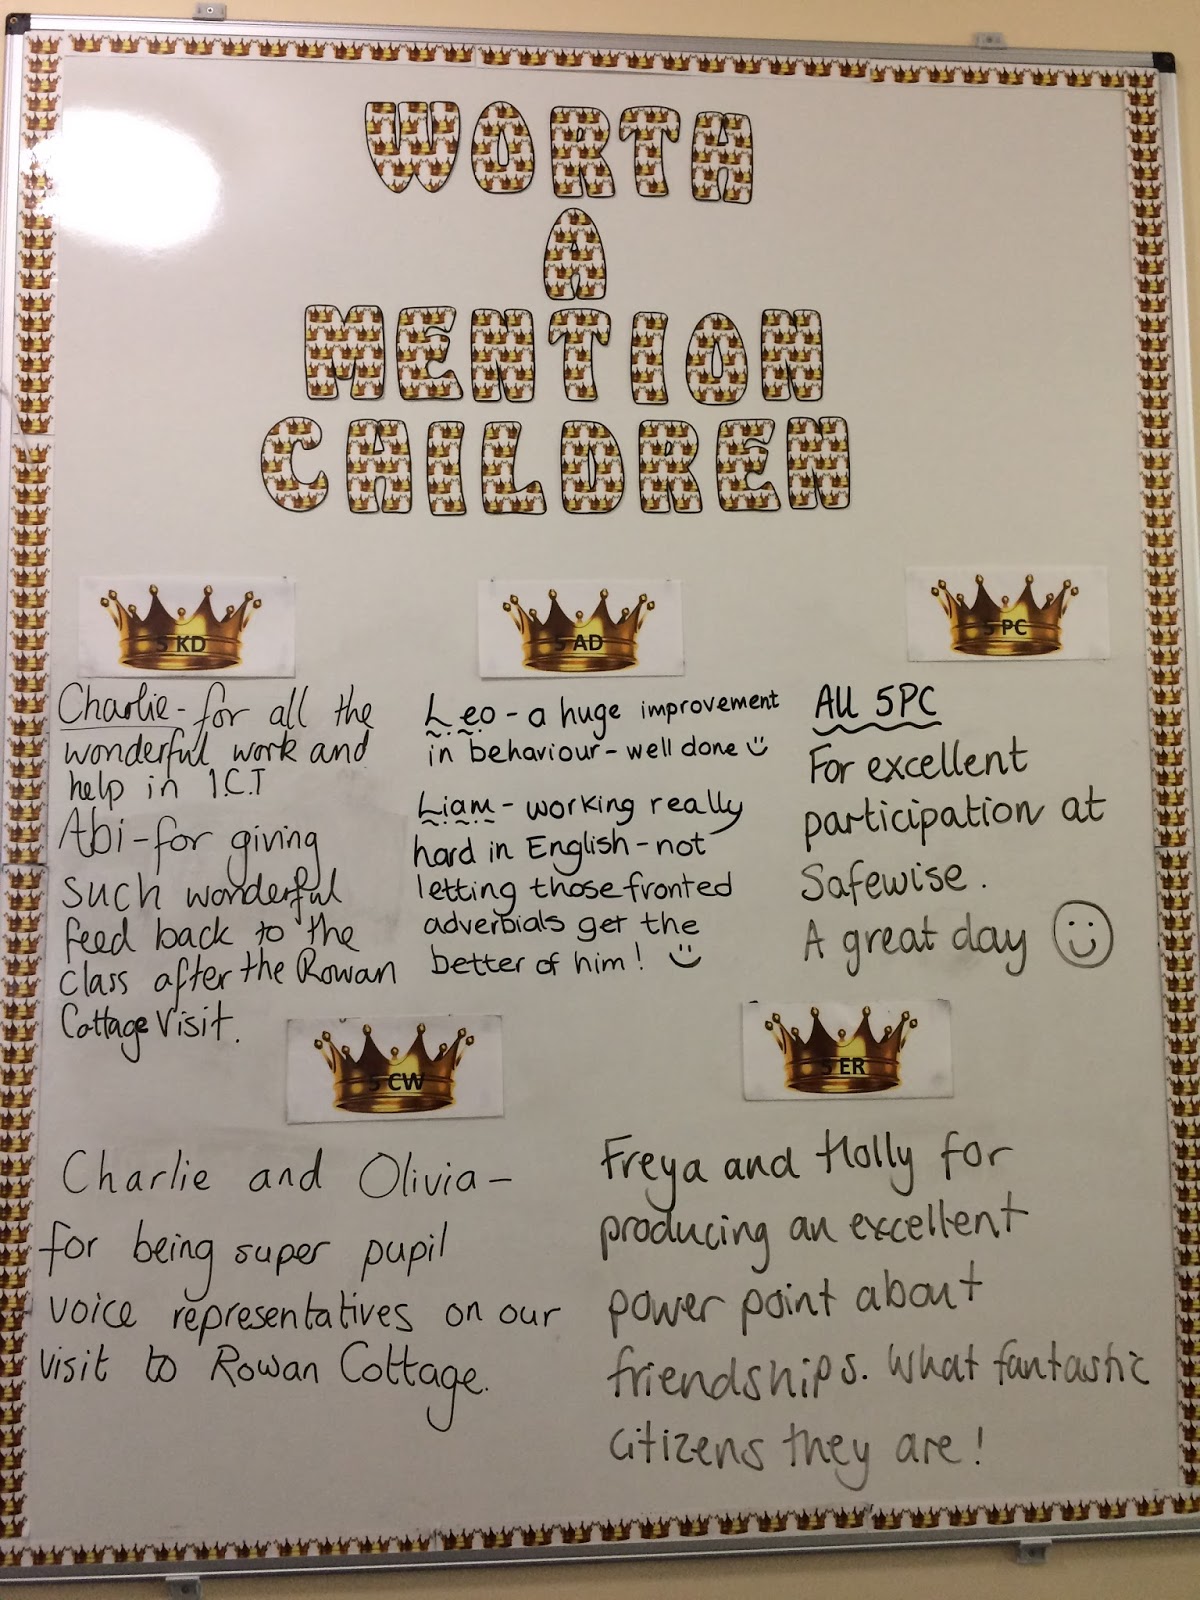 WORTH
A
MENTION
CHILDREN
5 KD
Charlie - for all the
wonderful work and
help in I.C.T
Abi - for giving
such wonderful
feed back to the
class after the Rowan
Cottage Visit.
5 AD
Leo - a huge improvement
in behaviour - well done
Liam - working really
hard in English - not
letting those fronted
adverbials get the
better of him!
5 PC
All 5PC
For excellent
participation at
Safewise.
A great day
5 CW
Charlie and Olivia -
for being super pupil
voice representatives on our
visit to Rowan Cottage.
5 ER
Freya and Holly for
producing an excellent
power point about
friendships. What fantastic
citizens they are!